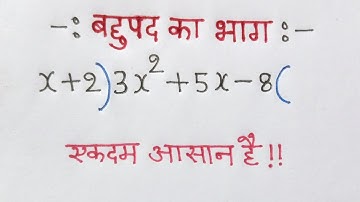 -: बहुपद का भाग :-
x+2)3x²+5x-8(
एकदम आसान है !!